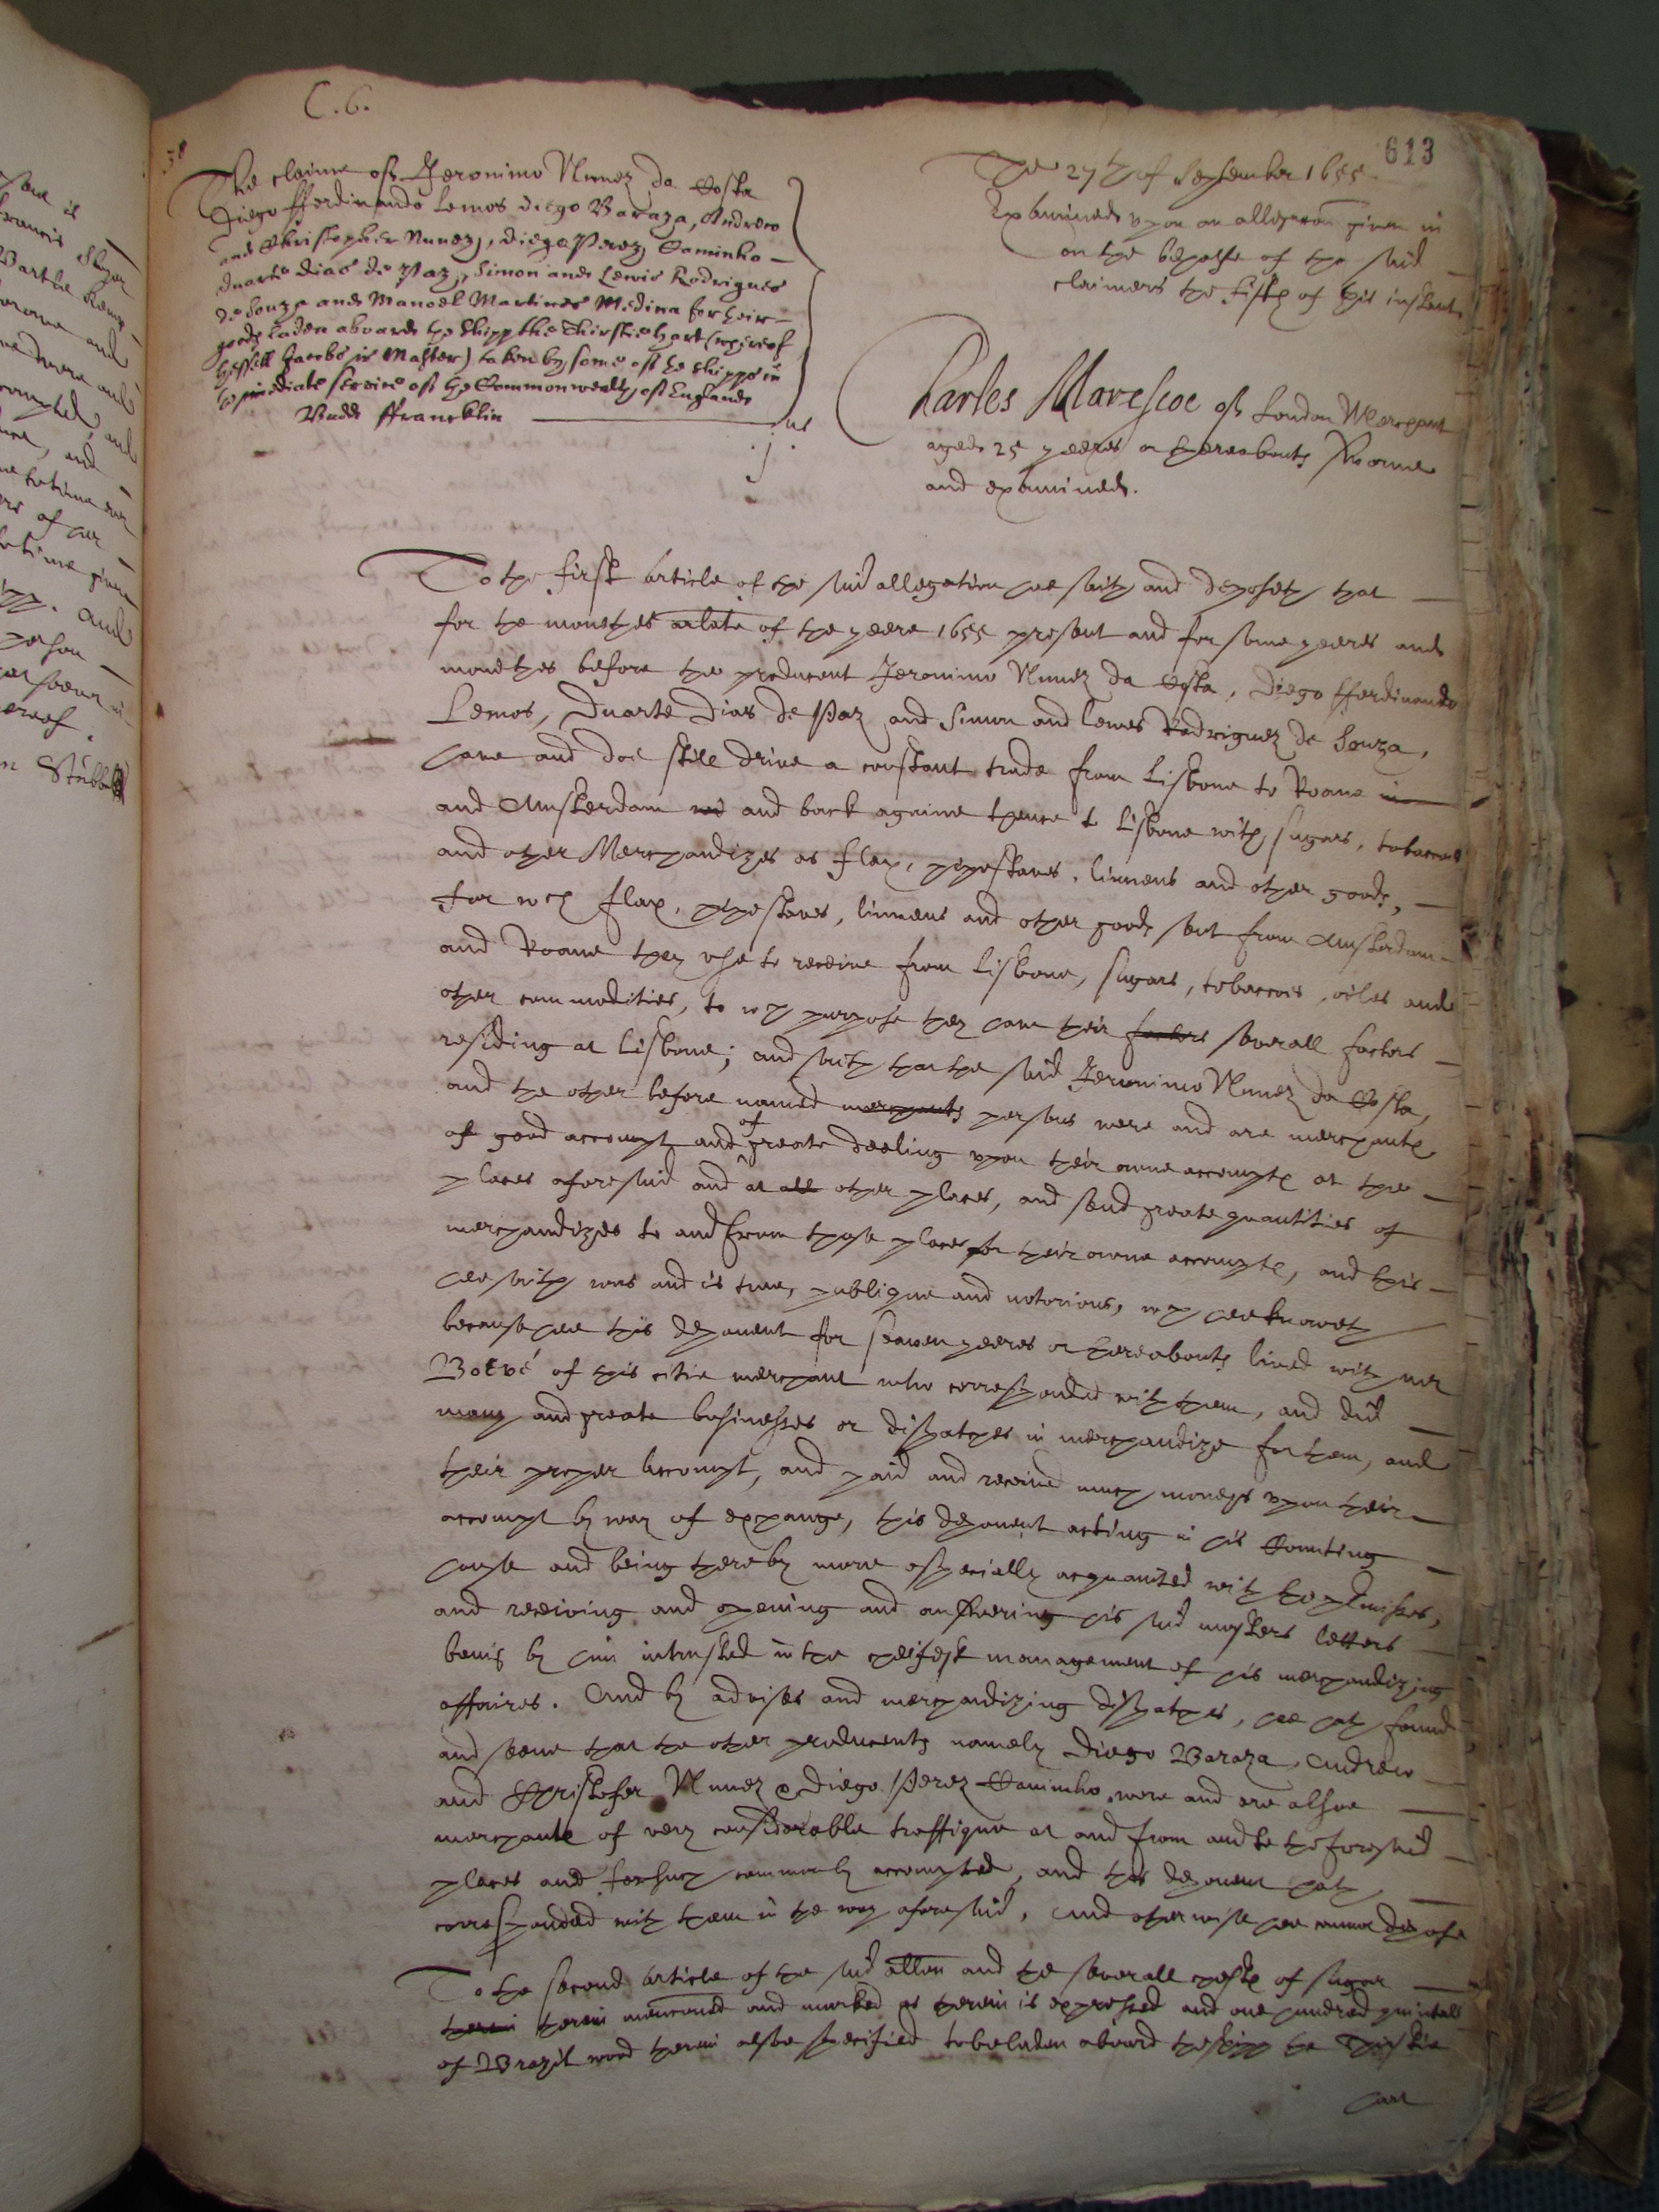 C. 6.
613
The claime of Jeronimo Nunez da Costa
Diego fferdinando Lemos Diego Baraza, Andrew
and Christopher Nunez, Diego Perez Caminho
Duarte Dias de Paz, Simon and Lewis Rodrigues
de Souza and Manoel Martines Medina for their
goods laden aboard the shipp the Thirstie Hart (whereof
Jacobs is Master) taken by some of the shipps in
the imediate service of the Commonwealth of England
Budd ffrancklin
.j.
The 27th of September 1655.
Examined upon an allegation given in
on the behalfe of the said
claimers the fifth of this instant.
Charles Marescoe of London Merchant
aged 25 yeeres or thereabouts sworne
and examined.
To the first article of the said allegation hee saith and deposeth that
for the monethes arlate of the yeere 1655 present and for some yeeres and
monethes before the producent Jeronimo Nunez da Costa, Diego fferdinando
Lemos, Duarte Dias de Paz and Simon and Lewes Rodriguez de Souza,
have and doe still drive a constant trade from Lisbone to Roane in
and Amsterdam and and back againe thence to Lisbone with sugars, tobaccoes
and other Merchandizes as flax, pipestaves, linnens and other goods,
for which flax, pipestaves, linnens and other goods sent from Amsterdam
and Roane they use to receive from Lisbone, sugars, tobaccois, oiles and
other commodities, to which purpose they have their factors severall factors
residing at Lisbone; and saith that the said Jeronimo Nunez da Costa,
and the other before named merchants persons were and are merchants
of good accompt and of greate dealing upon their owne accompts at the
places aforesaid and at all other places, and send greate quantities of
merchandizes to and from those places for their owne accompts, and this
hee saith was and is true, publique and notorious, which hee knoweth
because hee this deponent for seaven yeeres or thereabouts lived with mr
Boevé of this citie merchant who corresponded with them, and did
many and greate businesses or dispatches in merchandize for them, and
their proper accompt, and paid and received much moneys upon their
accompt by way of exchange, this deponent acting in his Counting
house and being thereby more especially acquainted with the premisses,
and receiving and opening and answering his said masters letters
being by him intrusted in the cheifest management of his merchandizing
affaires. And by advises and merchandizing dispatches, hee hath found
and seene that the other producents namely Diego Baraza, Andrew
and Christofer Nunez & Diego Perez Caminho, were and are alsoe
merchants of very considerable traffique at and from and to the foresaid
places and for such commonly accompted, and this deponent hath
corresponded with them in the way aforesaid, And otherwise hee cannot depose
To the second article of the said allegation and the severall chests of sugar
therein therein mencioned and marked as therein is expressed and one hundred quintalls
of Brazil wood therein alsoe specified to be laden aboard the shipp the Thirstie
hart